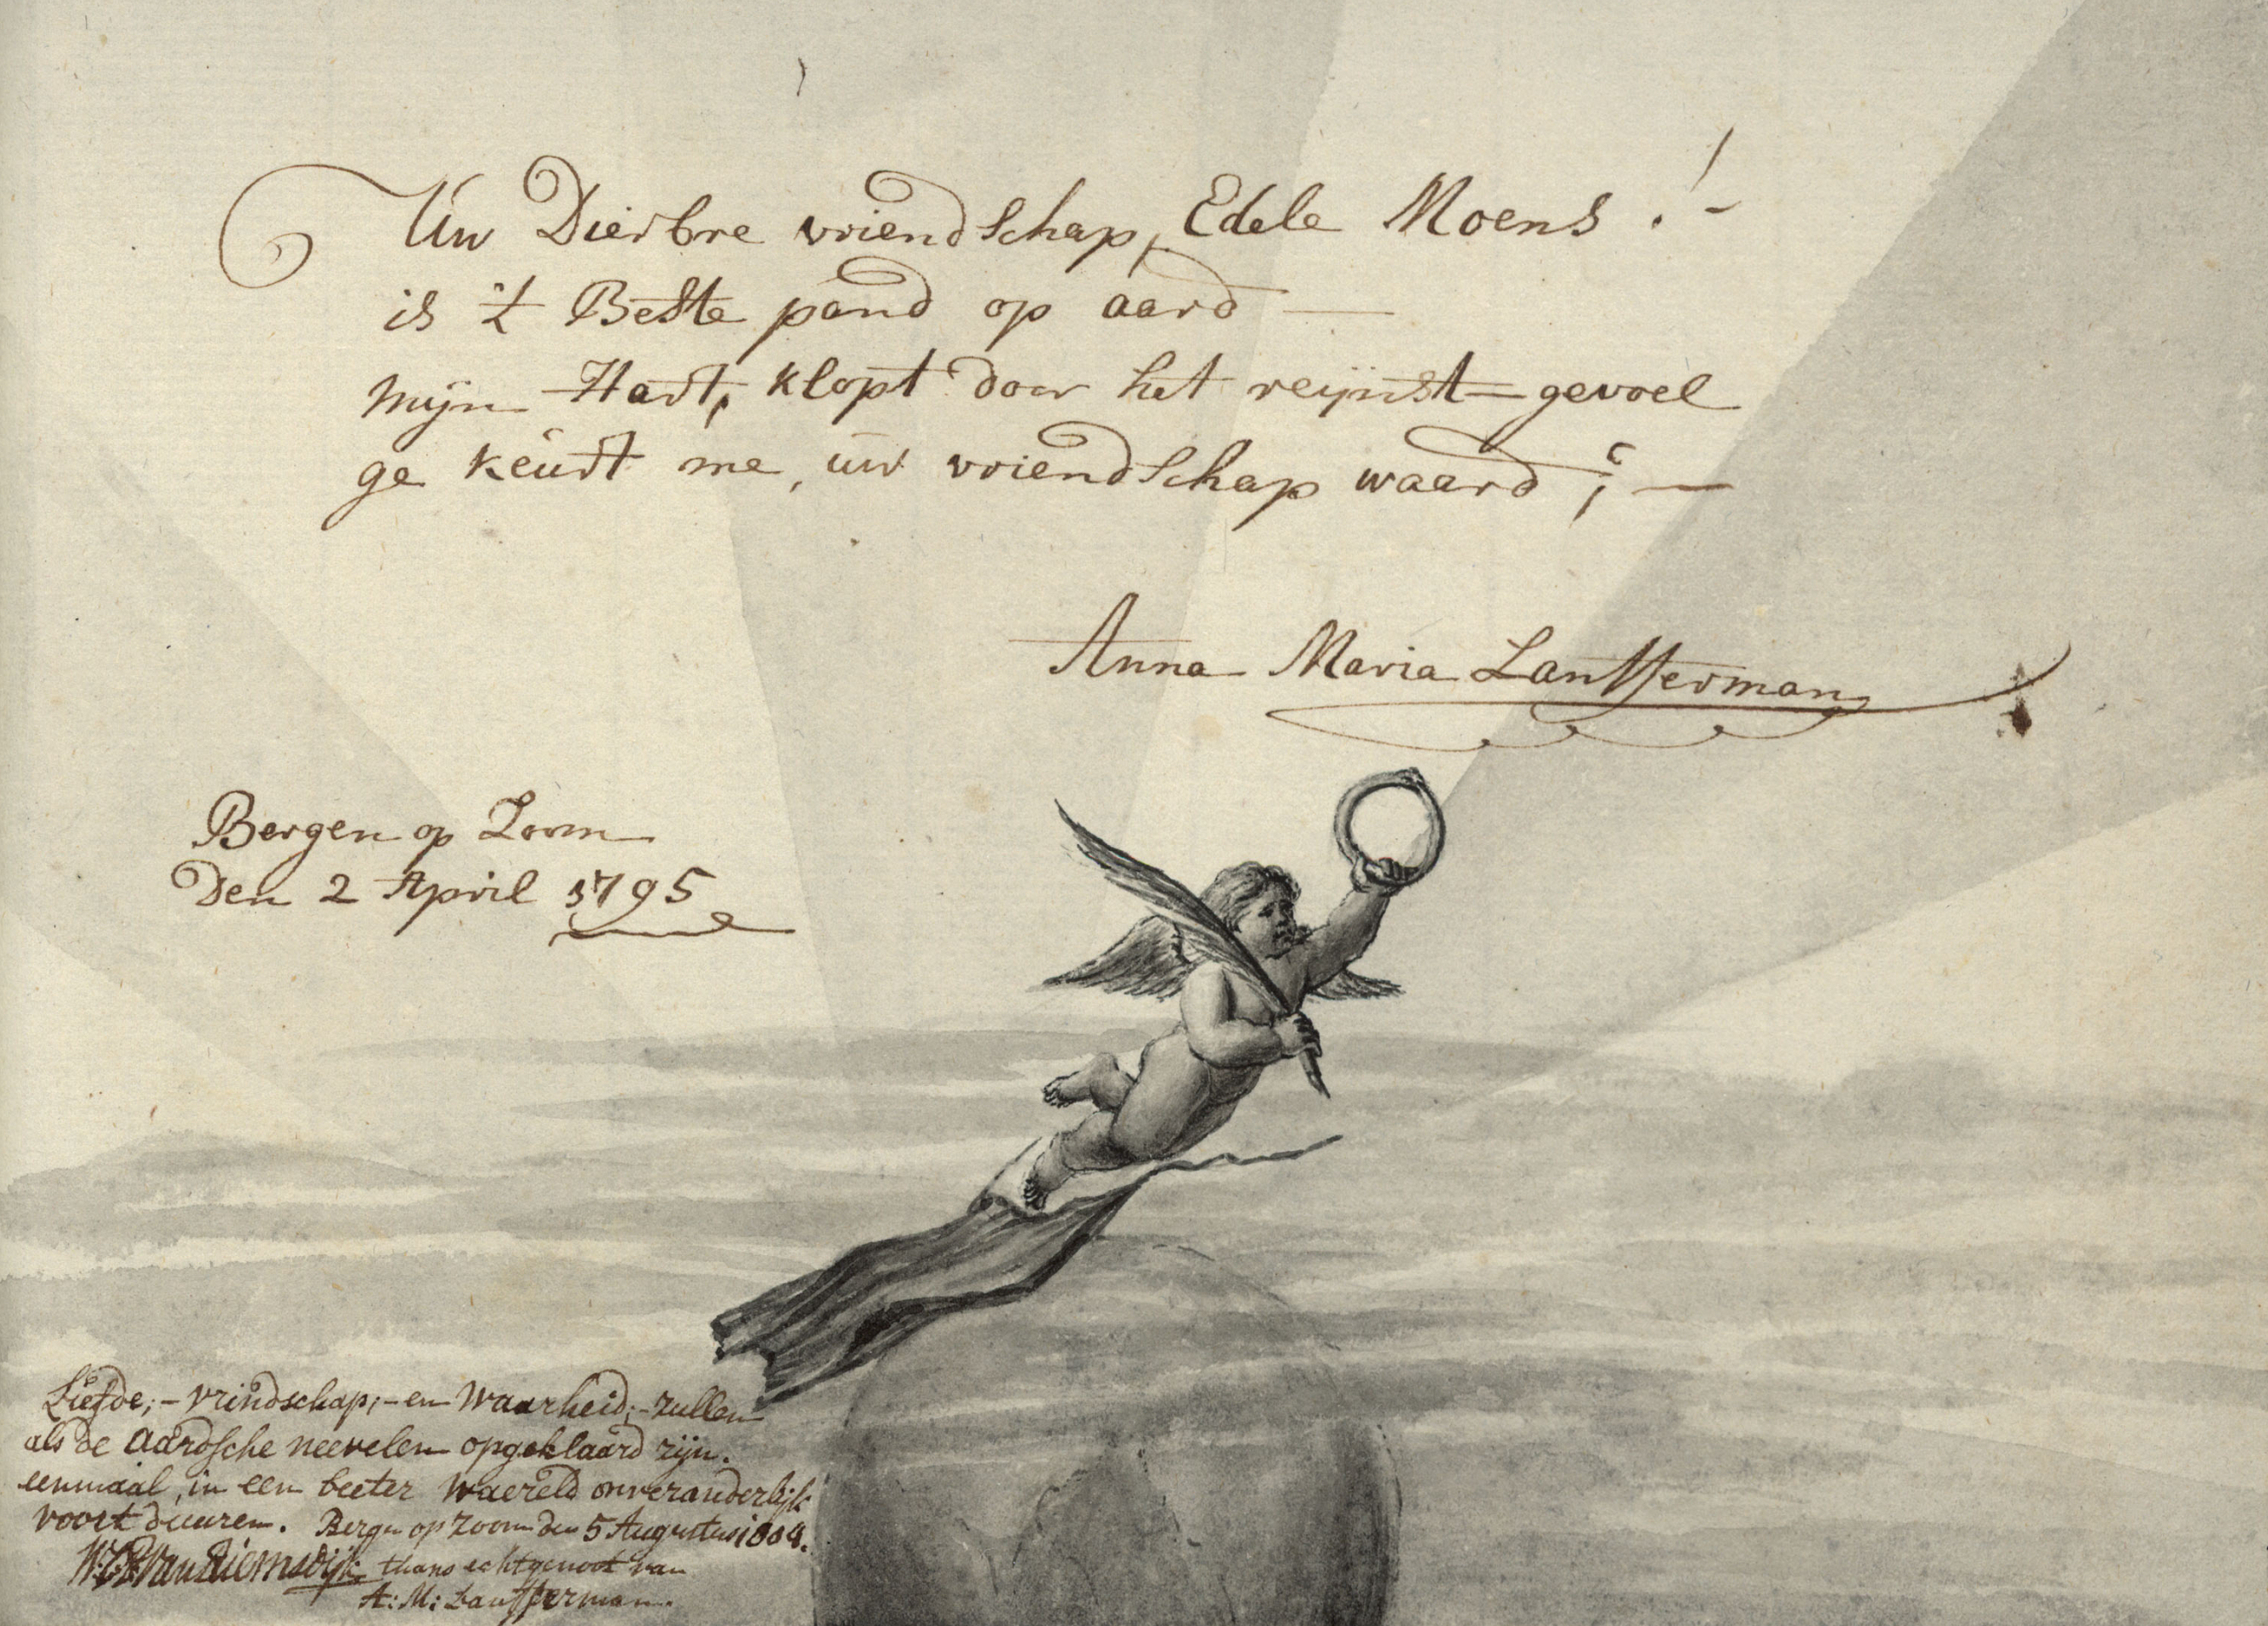 Uw Dierbre vriendschap, Edele Moens! -
is 't Beste pand op aard —
mijn Hart, klopt door het reijnst gevoel
ge keurt me, uw vriendschap waard; —
Anna Maria Lantsferman
Bergen op Zoom
Den 2 April 1795
Liefde; - vrindschap; - en Waarheid; - zullen
als de aardsche neevelen opgeklaard zijn.
eenmaal, in een beeter Waereld onveranderlijk
voort duuren. Bergen op Zoom den 5 Augustus 1804.
van Riemsdijk thans echtgenoot van
A: M: Lantsferman.